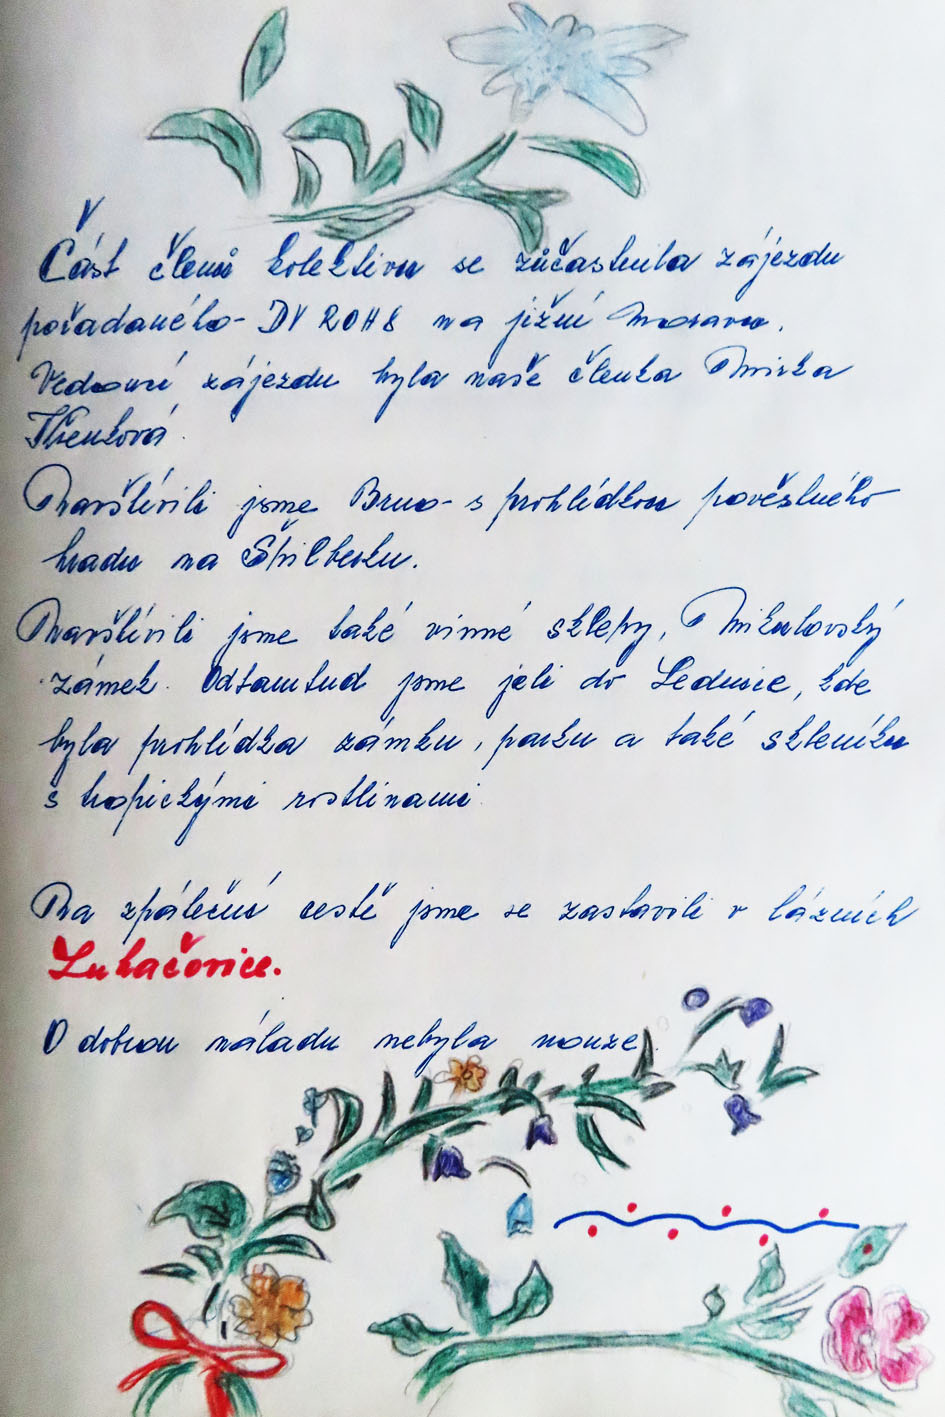 Část členů kolektivu se zúčastnila zájezdu
pořadaného - DV ROH S na jižní Moravu.
Vedoucí zájezdu byla naše členka Mirka
Navštívili jsme Brno - s prohlídkou pověstného
hradu na Špilberku.
Navštívili jsme také vinné sklepy, Mikulovský
zámek. Odtamtud jsme jeli do Lednice, kde
byla prohlídka zámku, parku a také skleníku
s tropickými rostlinami
Na zpáteční cestě jsme se zastavili v lázních
Luhačovice.
O dobrou náladu nebyla nouze.